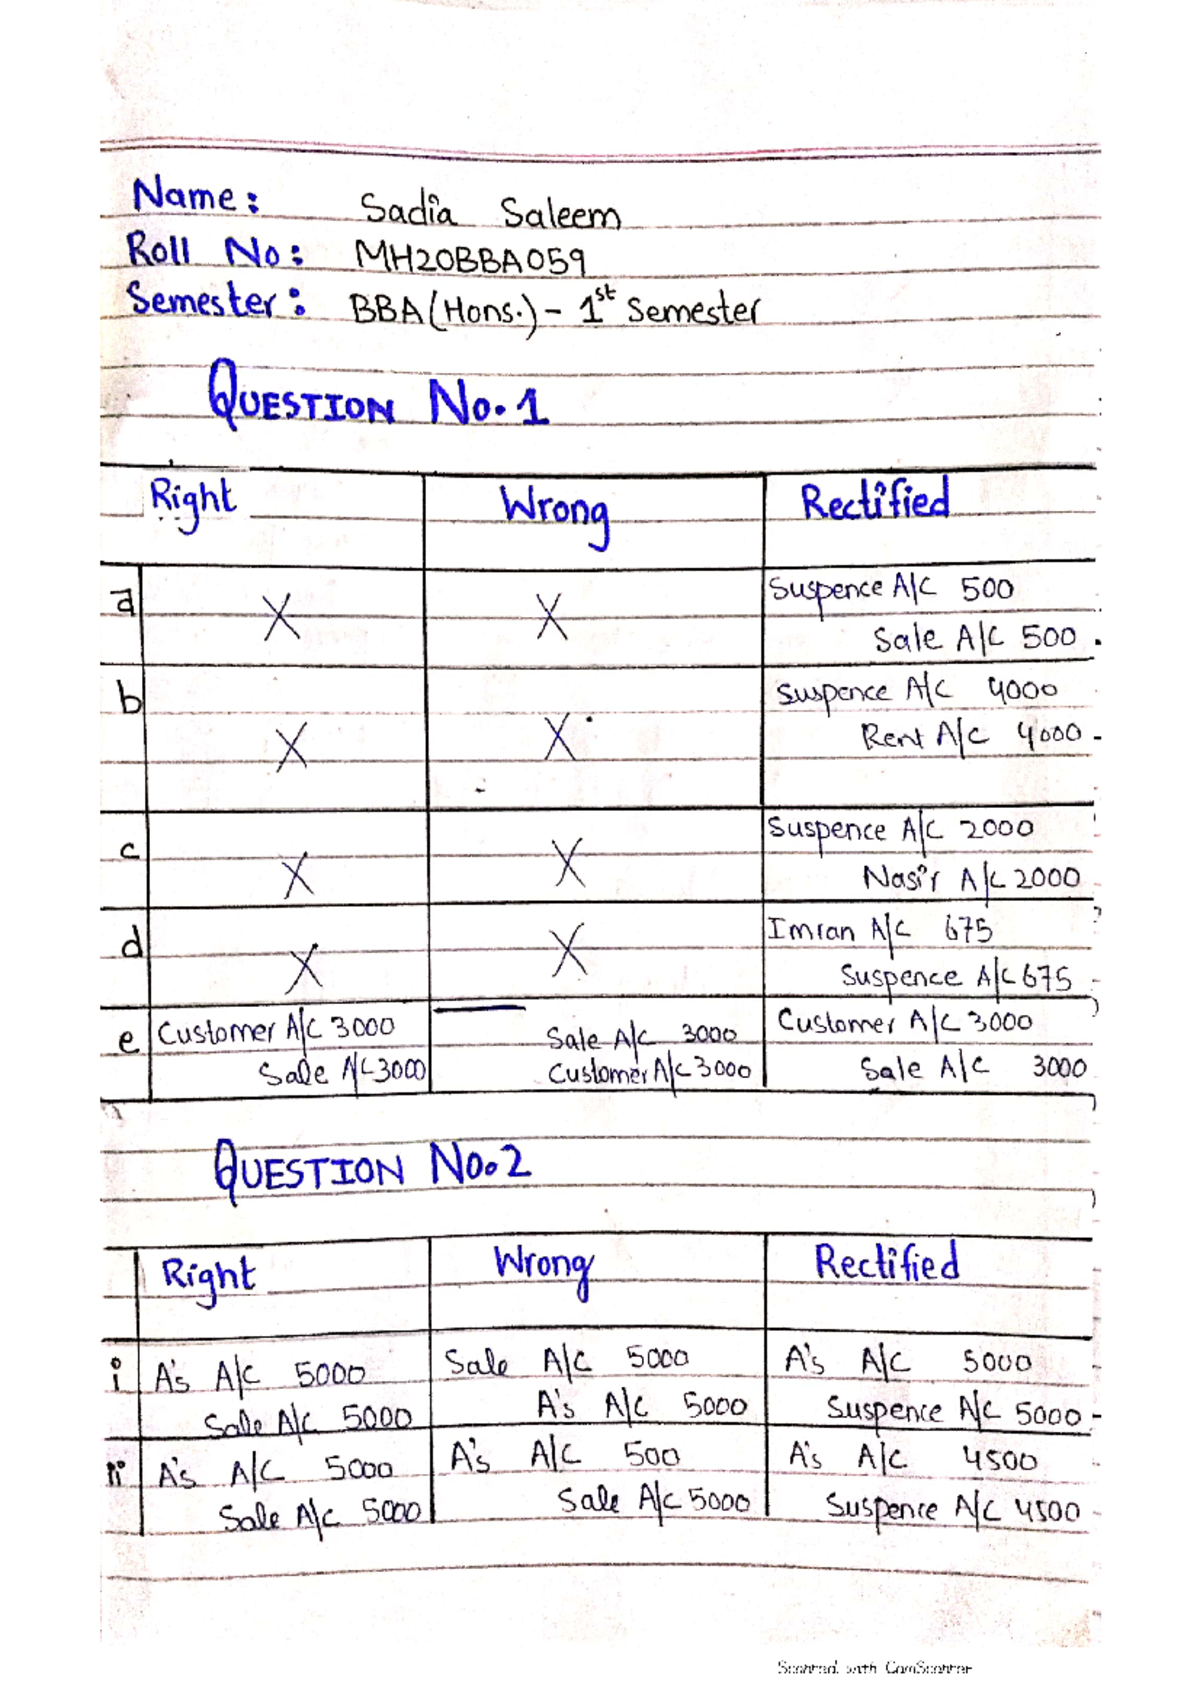 Name: Sadia Saleem
Roll No: MH20BBA059
Semester: BBA (Hons.) - 1st Semester
QUESTION No. 1
Right Wrong Rectified
a X X Suspence A/C 500
Sale A/C 500
b X X Suspence A/C 4000
Rent A/C 4000
c X X Suspence A/C 2000
Nasir A/C 2000
d X X Imran A/C 675
Suspence A/C 675
e Customer A/C 3000 Sale A/C 3000 Customer A/C 3000
Sale A/C 3000 Customer A/C 3000 Sale A/C 3000
QUESTION No. 2
Right Wrong Rectified
i A's A/C 5000 Sale A/C 5000 A's A/C 5000
Sale A/C 5000 A's A/C 5000 Suspence A/C 5000
ii A's A/C 5000 A's A/C 500 A's A/C 4500
Sale A/C 5000 Sale A/C 5000 Suspence A/C 4500
Scanned with CamScanner